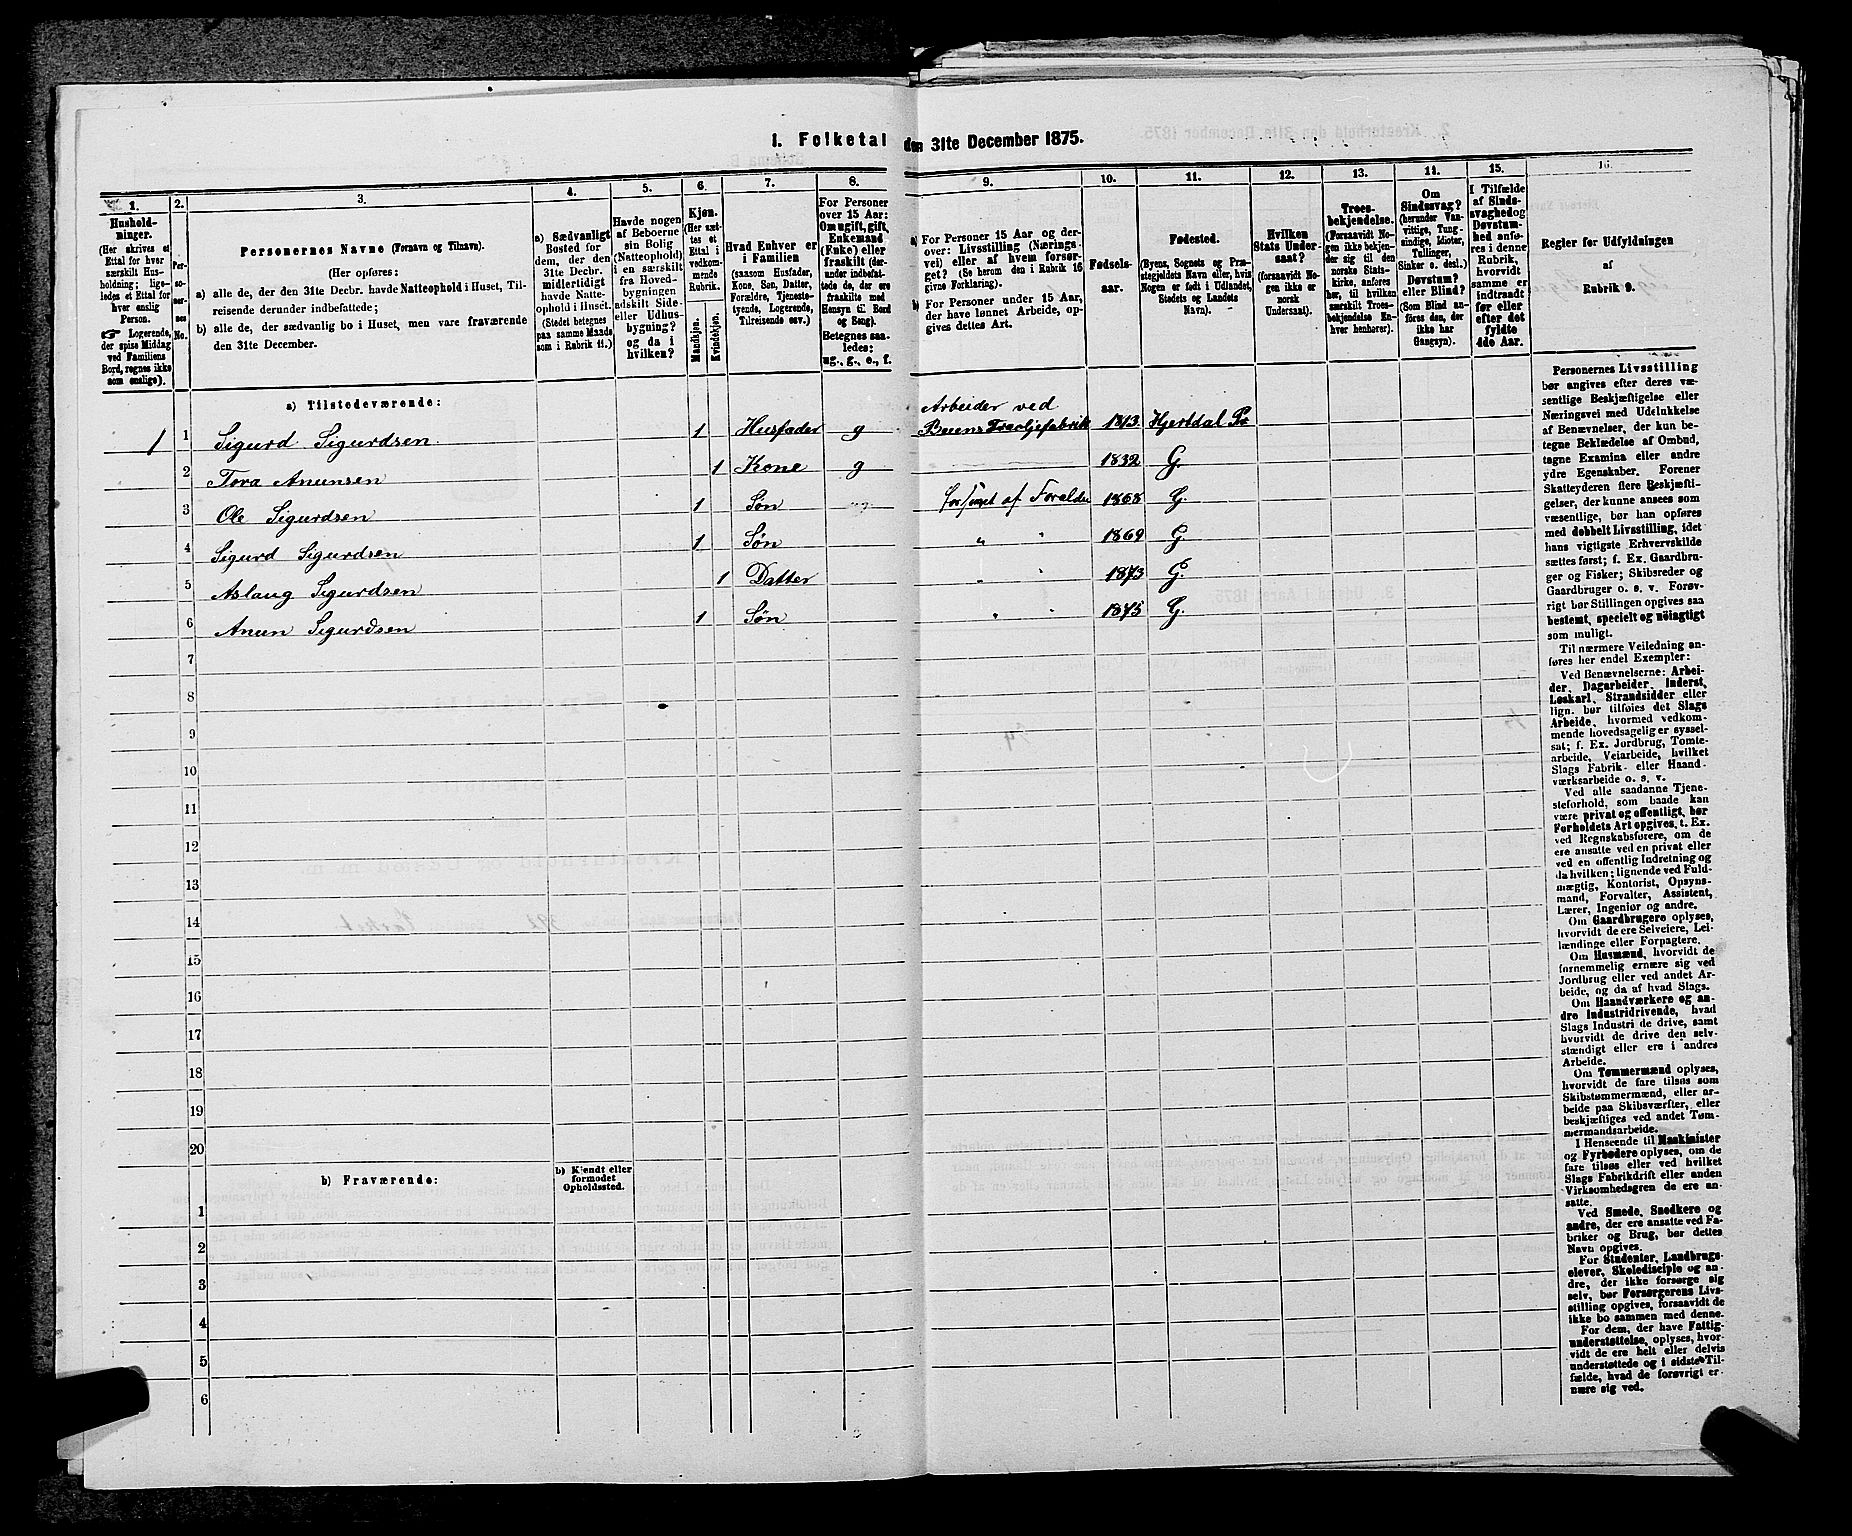 1. Folketal den 31te December 1875.
1. 2. 3. 4. 5. 6. 7. 8. 9. 10. 11. 12. 13. 14. 15. 16.
Hushold-
ninger.
(Her skrives et
Ettal for hver
særskilt Hus-
holdning; lige-
ledes et Ettal for
hver enslig
Person.
☞ Logerende,
der spise Middag
ved Familiens
Bord, regnes ikke
som enslige).
Per-
so-
ner-
nes
No.
Personernes Navne (Fornavn og Tilnavn).
(Her opføres:
a) alle de, der den 31te Decbr. havde Natteophold i Huset, Til-
reisende derunder indbefattede;
b) alle de, der sædvanlig bo i Huset, men vare fraværende
den 31te December.
a) Sædvanligt
Bosted for
dem, der den
31te Decbr.
midlertidigt
havde Natte-
ophold i Huset.
(Stedet betegnes
paa samme Maade
som i Rubrik 11.)
Havde nogen
af Beboerne
sin Bolig
(Natteophold)
i en særskilt
fra Hoved-
bygningen
adskilt Side-
eller Udhus-
bygning?
og da i
hvilken?
Kjøn.
(Her sæt-
tes et
Ettal i
vedkom-
mende
Rubrik.
Mandkjøn.
Kvindekjøn.
Hvad Enhver er
i Familien
(saasom Husfader,
Kone, Søn, Datter,
Forældre, Tjeneste-
tyende, Logerende,
Tilreisende osv.)
For Personer
over 15 Aar:
Om ugift, gift,
Enkemand
(Enke) eller
fraskilt (der-
under indbefat-
tede de, der ere
fraskilte med
Hensyn til Bord
og Seng).
Betegnes saa-
ledes:
ug., g., e., f.
a) For Personer 15 Aar og der-
over: Livsstilling (Nærings-
vei) eller af hvem forsør-
get? (Se herom den i Rubrik 16
givne Forklaring).
b) For Personer under 15 Aar,
der have lønnet Arbeide, op-
gives dettes Art.
Fødsels-
aar.
Fødested.
(Byens, Sognets og Præ-
stegjeldets Navn eller, hvis
Nogen er født i Udlandet,
Stedets og Landets
Navn).
Hvilken
Stats Under-
saat?
(forsaavidt No-
gen ikke er
norsk
Undersaat).
Troes-
bekjendelse.
(Forsaavidt No-
gen ikke bekjen-
der sig til den
norske Stats-
kirke, anføres
her, til hvilken
særskilt Troes-
bekjendelse En-
hver henhører).
Om
Sindssvag?
(herunder Van-
vittige, Tung-
sindige, Idioter,
Tullinger,
Sinker o. desl.)
Døvstum?
eller Blind?
(Som Blind an-
føres den, der
ikke har
Gangsyn).
I Tilfælde
af Sinds-
svaghed og
Døvstum-
hed anfø-
res i denne
Rubrik,
hvorvidt
samme er
indtraadt
før eller
efter det
fyldte
4de Aar.
Regler for Udfyldningen
af
Rubrik 9.
a) Tilstedeværende:
Arbeider ved
1 1 Sigurd Sigurdsen 1 Husfader g Træsliefabrik 1843 Hjertdal Pr
2 Tora Anunsen 1 Kone g 1832 G.
3 Ole Sigurdsen 1 Søn forsørget af Forælde 1868 G.
4 Sigurd Sigurdsen 1 Søn " " 1869 G
5 Aslaug Sigurdsen 1 Datter " " 1873 G.
6 Anun Sigurdsen 1 Søn " " 1875 G.
7
8
9
10
11
12
13
14
15
16
17
18
19
20
b) Fraværende:
b) Kjendt eller
formodet
Opholdssted.
1
2
3
4
5
6
Personernes Livsstilling
bør angives efter deres væ-
sentlige Beskjæftigelse eller
Næringsvei med Udelukkelse
af Benævnelser, der kun be-
tegne Beklædelse af Ombud,
tagne Examina eller andre
ydre Egenskaber. Forener
Skatteyderen flere Beskjæfti-
gelser, der kunne ansees som
væsentlige, bør han opføres
med dobbelt Livsstilling, idet
hans vigtigste Erhvervskilde
sættes først; f. Ex. Gaardbru-
ger og Fisker; Skibsreder og
Gaardbruger o. s. v. Forøv-
rigt bør Stillingen opgives saa
bestemt, specielt og nøiagtigt
som muligt.
Til nærmere Veiledning an-
føres her endel Exempler:
Ved Benævnelserne: Arbei-
der, Dagarbeider, Inderst,
Løskarl, Strandsidder eller
lign. bør tilføies det Slags
Arbeide, hvormed vedkom-
mende hovedsagelig er syssel-
sat; f. Ex. Jordbrug, Tomte-
arbeide, Veiarbeide, hvilket
Slags Fabrik- eller Haand-
værksarbeide o. s. v.
Ved alle saadanne Tjene-
steforhold, som baade kan
være privat og offentligt, bør
Forholdets Art opgives, t. Ex.
ved Regnskabsførere, om de
ere ansatte ved en privat eller
ved en offentlig Indretning og
da hvilken; lignende ved Fuld-
mægtig, Kontorist, Opsyns-
mand, Forvalter, Assistent,
Lærer, Ingeniør og andre.
Om Gaardbrugere oplyses,
hvorvidt de ere Selveiere, Lei-
lændinge eller Forpagtere.
Om Husmænd, hvorvidt de
fornemmelig ernære sig ved
Jordbrug eller ved andet Ar-
beide, og da af hvad Slags.
Om Haandværkere og an-
dre Industridrivende, hvad
Slags Industri de drive, samt
hvorvidt de drive den selv-
stændigt eller ere i andres
Arbeide.
Om Tømmermænd oplyses,
hvorvidt de fare tilsøs som
Skibstømmermænd, eller ar-
beide paa Skibsværfter, eller
beskjæftiges ved andet Tøm-
mermandsarbeide.
I Henseende til Maskinister
og Fyrbødere oplyses, om de
fare tilsøs eller ved hvilket
Slags Fabrikdrift eller anden
Virksomhedsgren de ere an-
satte.
Ved Smede, Snedkere og
andre, der ere ansatte ved Fa-
briker og Brug, bør dettes
Navn opgives.
For Studenter, Landbrugs-
elever, Skoledisciple og an-
dre, der ikke forsørge sig
selv, bør Forsørgerens Livs-
stilling opgives, forsaavidt de
ikke bo sammen med denne.
For dem, der have Fattig-
understøttelse, oplyses, hvor-
vidt de ere helt eller delvis
understøttede og i sidste Til-
fælde, hvad de forøvrigt er-
nære sig ved.